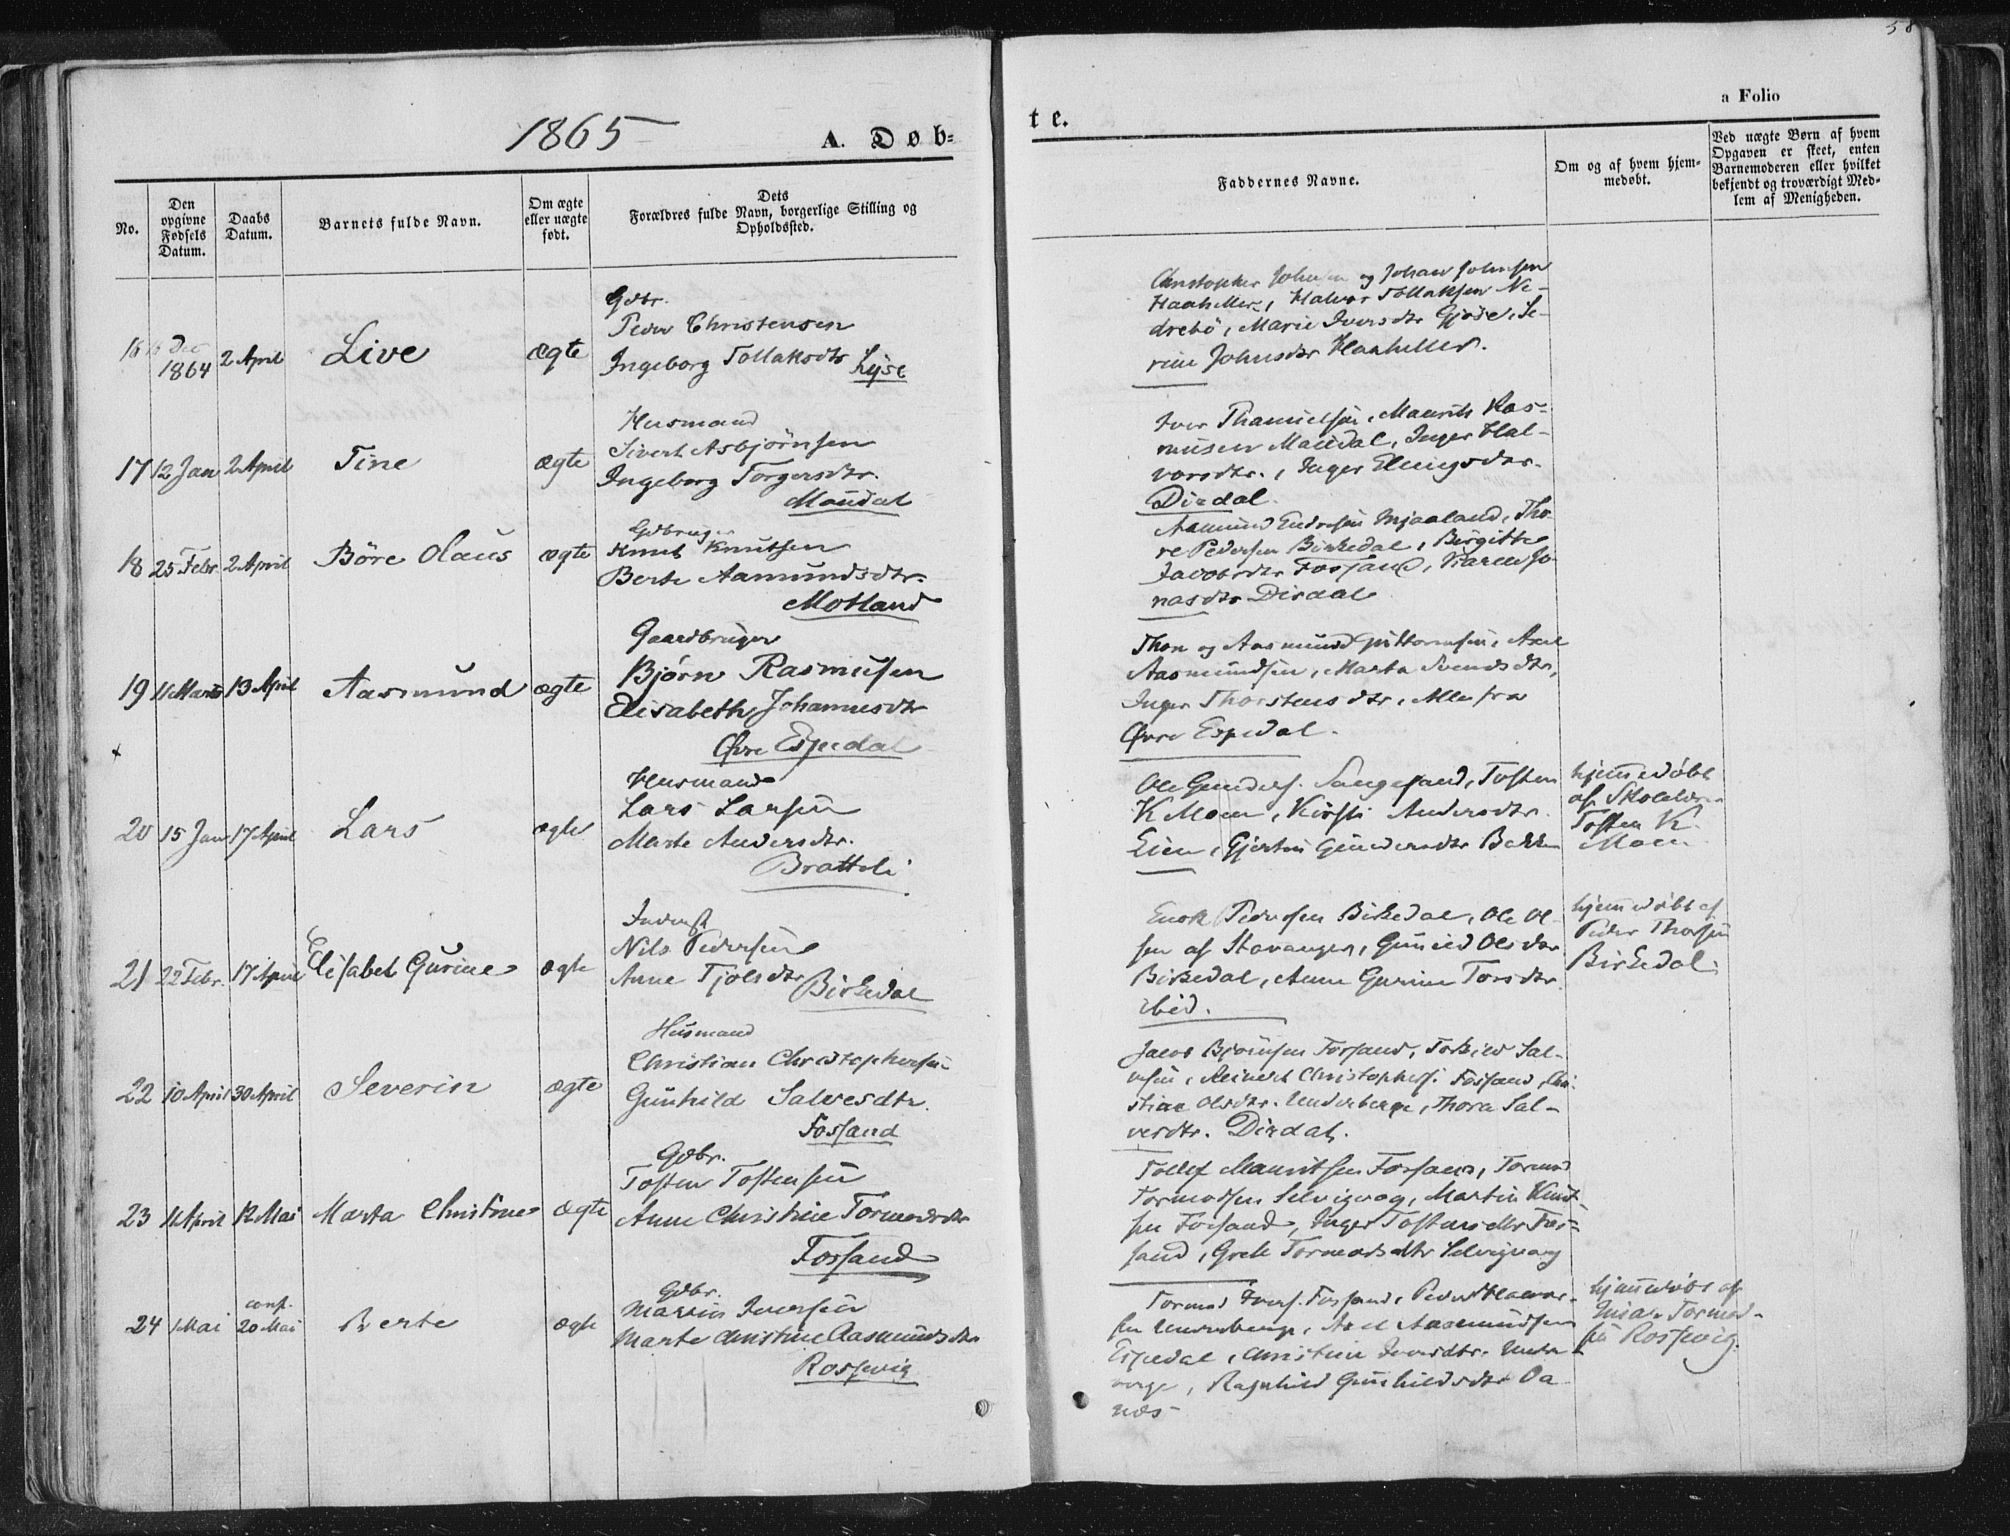 58
1865
A. Døb-
te.
a Folio
No.
Den opgivne Fødsels Datum.
Daabs Datum.
Barnets fulde Navn.
Om ægte eller uægte født.
Dets Forældres fulde Navn, borgerlige Stilling og Opholdssted.
Faddernes Navne.
Om og af hvem hjemmedøbt.
Ved uægte Børn af hvem Opgaven er skeet, enten Barnemoderen eller hvilket bekjendt og troværdigt Medlem af Menigheden.
16
16 Dec
1864
2 April
Live
ægte
Gdbr.
Peder Christensen
Ingeborg Tollaksdtr
Lyse
Christopher Johnsen og Johan Johnsen
Haaheller, Halvor Tollaksen Ne-
drebö, Marie Iversdtr Gjøse, Se-
rine Johnsdtr Haaheller.
17
12 Jan
2 April
Tine
ægte
Husmand
Sivert Asbjörnsen
Ingeborg Torgersdtr.
Maudal
Iver Thamielsen, Maurits Ras-
musen Maudal, Inger Hal-
vorsdtr., Inger Elingsdtr.
Dirdal.
18
25 Febr
2 April
Böre Olaus
ægte
Gdbruger
Knut Knutsen
Berte Aamundsdtr.
Motland
Aamund Endresen Mjaaland, Tho-
re Pedersen Birkedal, Birgitte
Jacobsdtr Forsand, Karen Jo-
nasdtr Dirdal
19
11 Marts
13 April
Aasmund
ægte
Gaardbruger
Bjørn Rasmusen
Elisabeth Johannesdtr
Øvre Espedal
Thore og Aasmund Guttormsen, Axel
Aasmundsen, Marta Svendsdtr,
Inger Thorstensdtr, Alle fra
Øvre Espedal.
20
15 Jan
17 April
Lars
ægte
Husmand
Lars Larsen
Marte Andersdtr.
Bratteli
Ole Gunders. Sangesand, Tosten
K Moen, Kirsti Andersdtr.
Eien, Gjertine Gundersdtr Bakken
hjemmedøbt
af Skolelærer
Tosten K.
Moen
21
22 Febr.
17 April
Elisabet Gurine
ægte
Inderst
Nils Pedersen
Anne Tjølsdtr
Birkedal
Enok Pedersen Birkedal, Ole Ol-
sen af Stavanger, Gunild Olsdtr
Birkedal, Anne Gurine Torsdtr
ibid.
hjemmedøbt af
Peder Thorsen
Birkedal
22
10 April
30 April
Severin
ægte
Husmand
Christian Christophersen
Gunhild Salvesdtr.
Fossand
Jacob Bjørnsen Forsand, Torkild Sal-
vesen, Reinert Christophers. Fossand, Chri-
stine Olsdtr. Underberge, Thora Sal-
vesdtr. Dirdal.
23
11 April
12 Mai
Marta Christine
ægte
Gdbr.
Tosten Tostensen
Anne Christine Tormodsdtr
Forsand
Tollef Mauritsen Forsand, Tormod
Tormodsen Selvigvog, Martin Knut-
sen Forsand, Inger Tostensdtr For-
sand, Grete Tormodsdtr Selvigvog
24
1 Mai
conf.
20 Mai
Berte
ægte
Gdbr.
Martin Iversen
Marte Christine Aasmundsdtr
Rossevig
Tormod Ivers. Forsand, Peder Halvor-
sen Underberge, Axel Aasmundsen
Espedal, Christine Iversdtr. Under-
berge, Ragnhild Gunhildsdtr Oa-
næs
hjemmedøbt af
Tormod-
sen Rossevig.